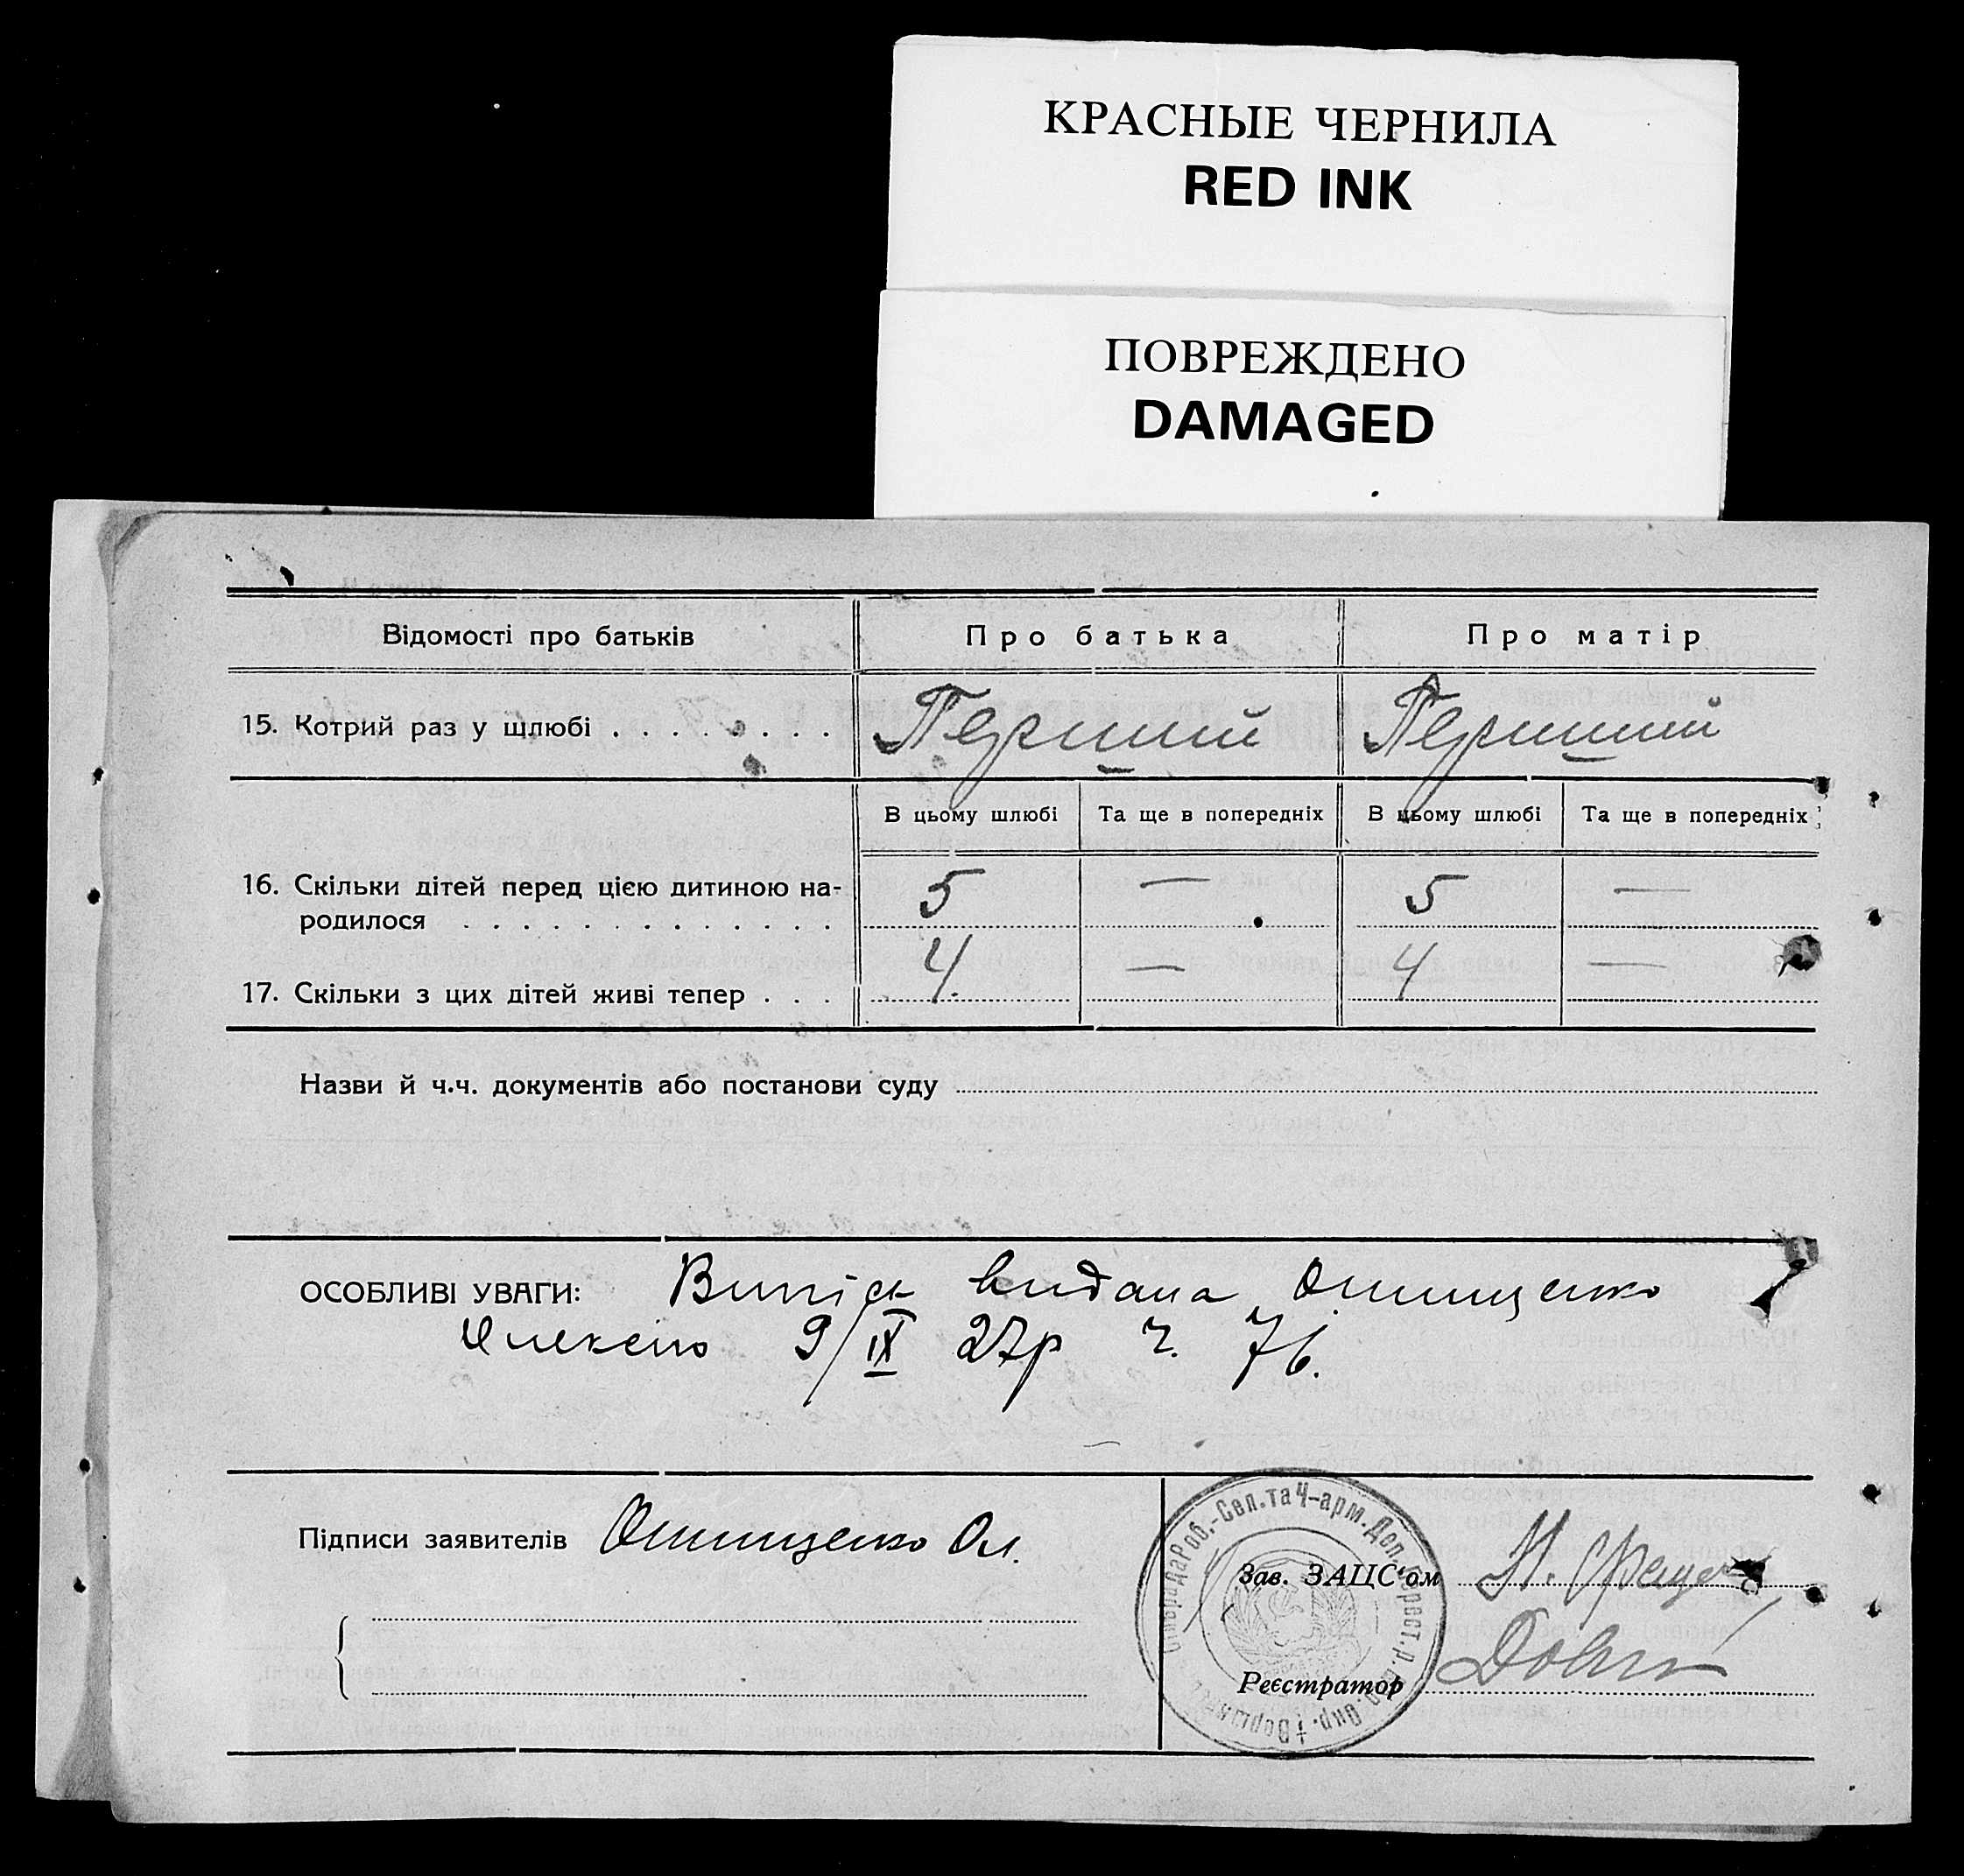 КРАСНЫЕ ЧЕРНИЛА
RED INK
ПОВРЕЖДЕНО
DAMAGED
Відомості про батьків Про батька Про матір
15. Котрий раз у шлюбі . . . . . . . . Перший Перший
В цьому шлюбі Та ще в попередніх В цьому шлюбі Та ще в попередніх
16. Скільки дітей перед цією дитиною на- 5 — 5 —
родилося . . . . . . . . . . . . .
17. Скільки з цих дітей живі тепер . . . 4. — 4 —
Назви й ч.ч. документів або постанови суду
ОСОБЛИВІ УВАГИ: Випісь видана Онищенко
Олексію 9/IX 27р ч. 76.
Підписи заявителів Онищенко Ол.
Роб.-Сел. та Ч-арм. Деп.
Зав. ЗАЦС'ом
Реєстратор